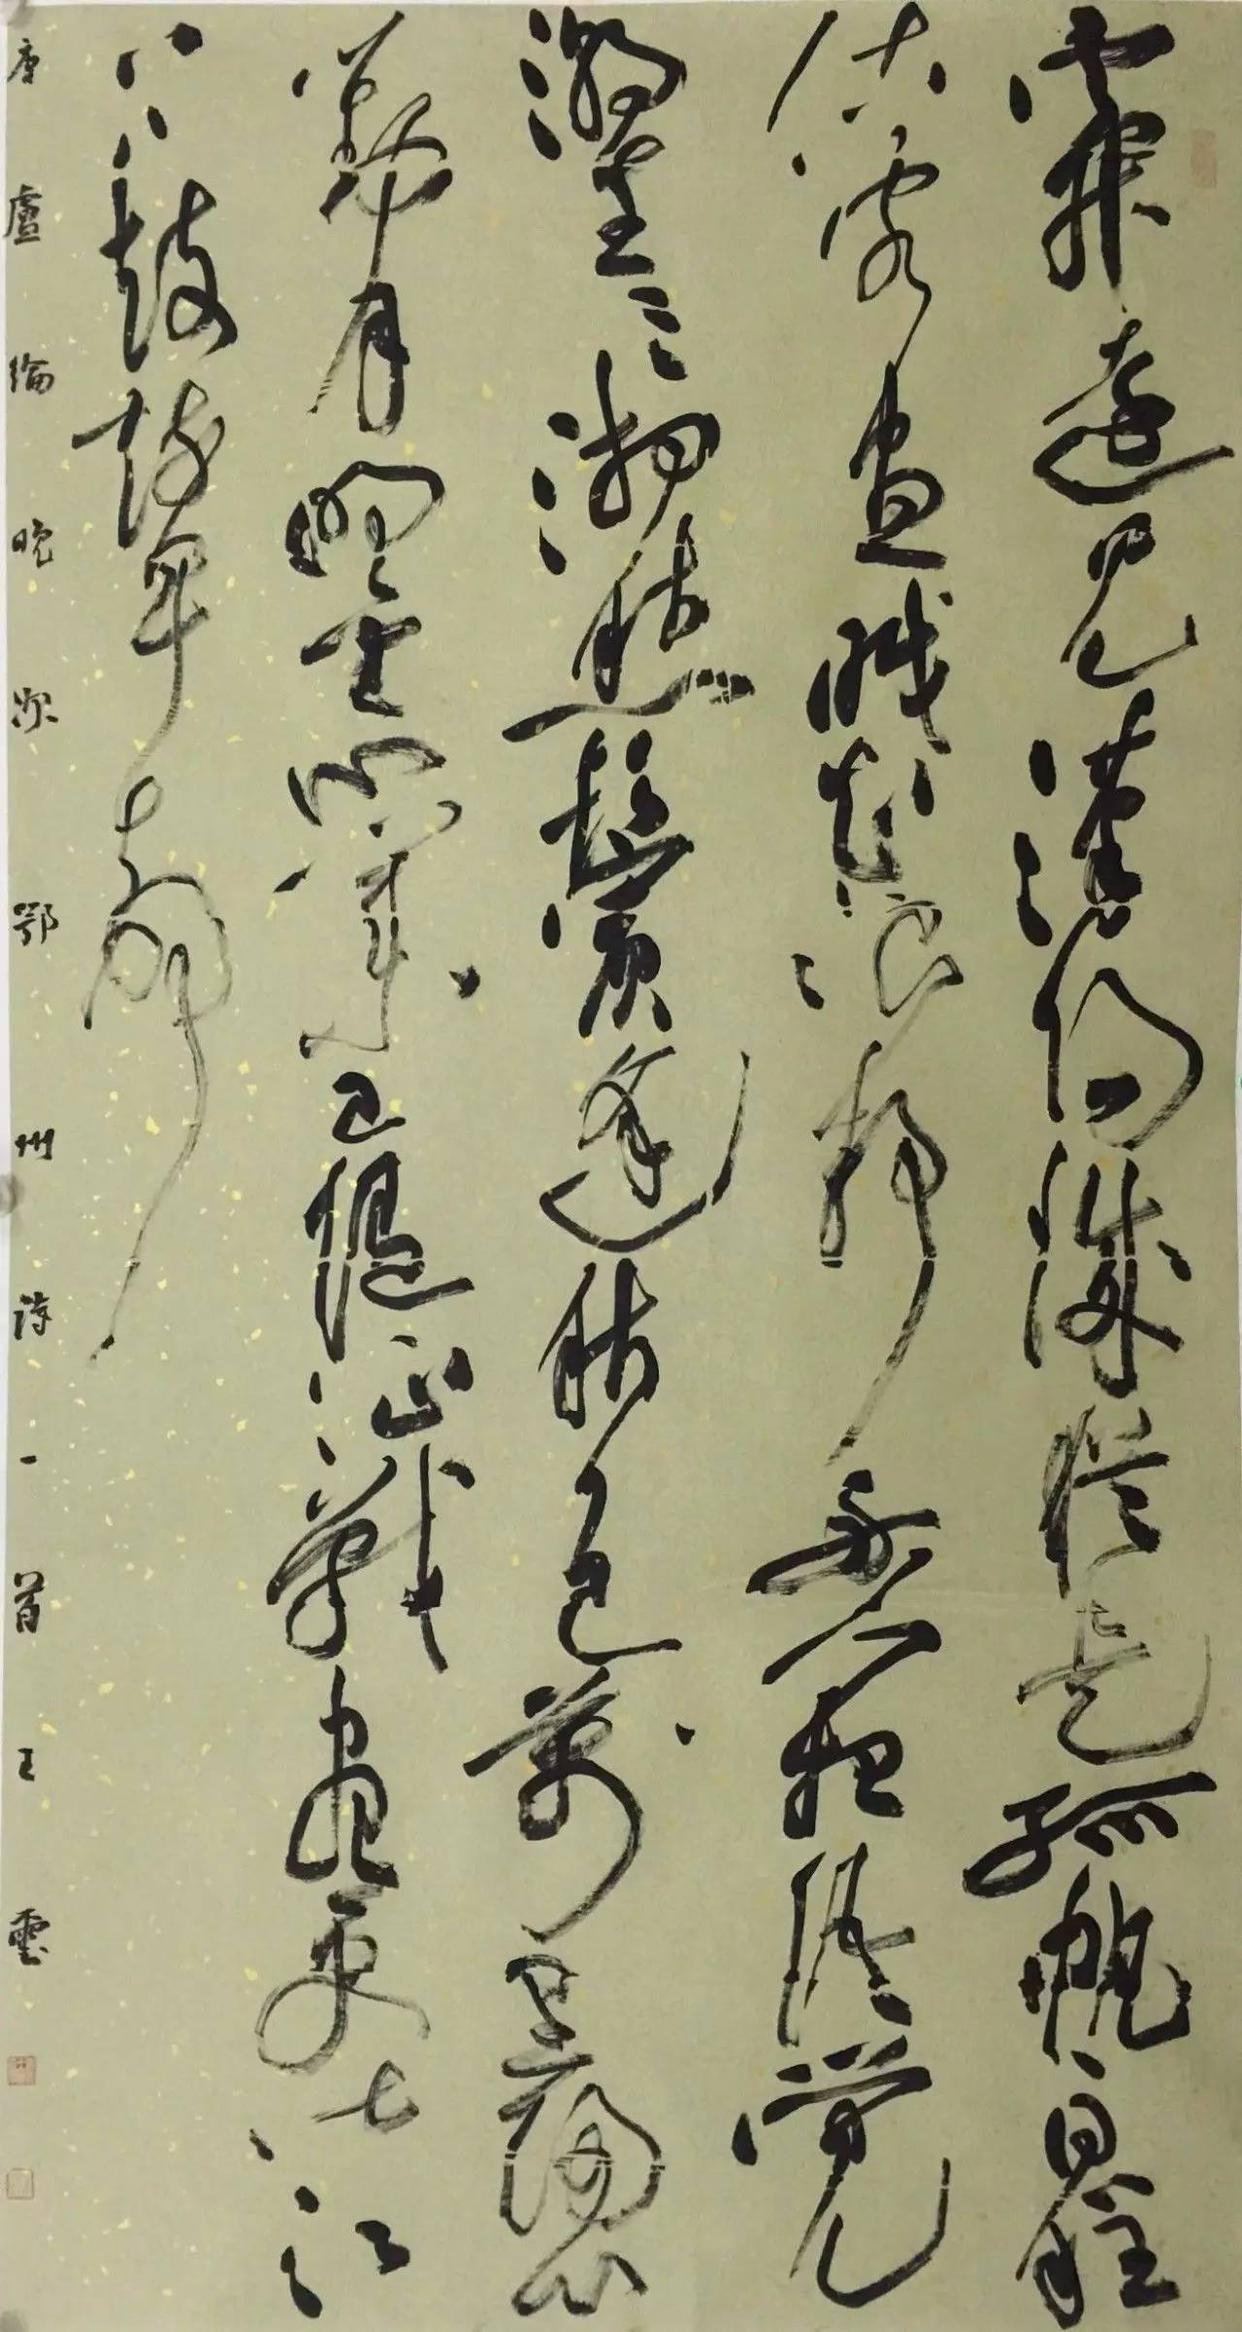 雲開遠見漢陽城猶是孤帆一日程
估客晝眠知浪靜舟人夜語覺
潮生三湘愁鬢逢秋色萬里歸心
對月明舊業已隨征戰盡更堪江
上鼓鼙聲
唐盧綸晚次鄂州詩一首王雲